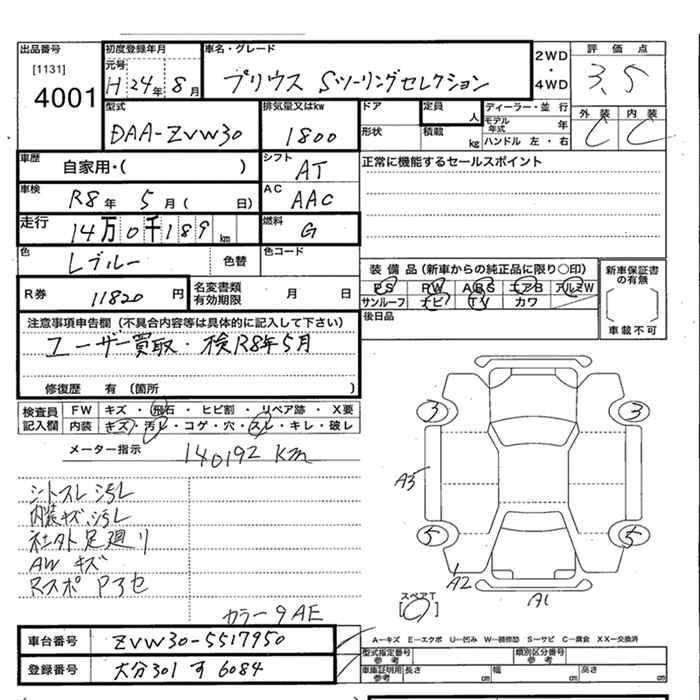 出品番号
[1131]
4001
初度登録年月
元号
H 24年 8月
車名・グレード
プリウス Sツーリングセレクション
2WD
・
4WD
評価点
3.5
外装 内装
C C
型式
DAA-ZVW30
排気量又はkw
1800
ドア
形状
定員
人
積載
kg
ディーラー・並行
モデル年式 年
ハンドル 左・右
車歴
自家用・( )
シフト
AT
正常に機能するセールスポイント
車検
R8年 5月( 日)
AC
AAC
走行
14万0千189 km
燃料
G
色
Lブルー
色替
色コード
装備品(新車からの純正品に限り○印)
PS PW ABS エアB アルミW
サンルーフ ナビ TV カワ
新車保証書の有無
車載不可
R券
11820 円
名変書類有効期限
月 日
後日品
注意事項申告欄(不具合内容等は具体的に記入して下さい)
ユーザー買取・検R8年5月
修復歴 有(箇所 )
検査員記入欄
FW キズ・飛石・ヒビ割・リペア跡・X要
内装 キズ・汚レ・コゲ・穴・スレ・キレ・破レ
メーター指示
140192 Km
シートスレ 汚レ
内装キズ、汚レ
社外足廻り
AW キズ
Rスポ P3セ
カラー9AE
3 3
A3
5 5
A2 A1
スペアT
A-キズ E-エクボ U-凹み W-補修跡 S-サビ C-腐食 XX-交換済
車台番号
ZVW30-5517950
登録番号
大分301 す 6084
型式指定番号
参考
類別区分番号
参考
車庫証明用
参考
長さ cm 幅 cm 高さ cm